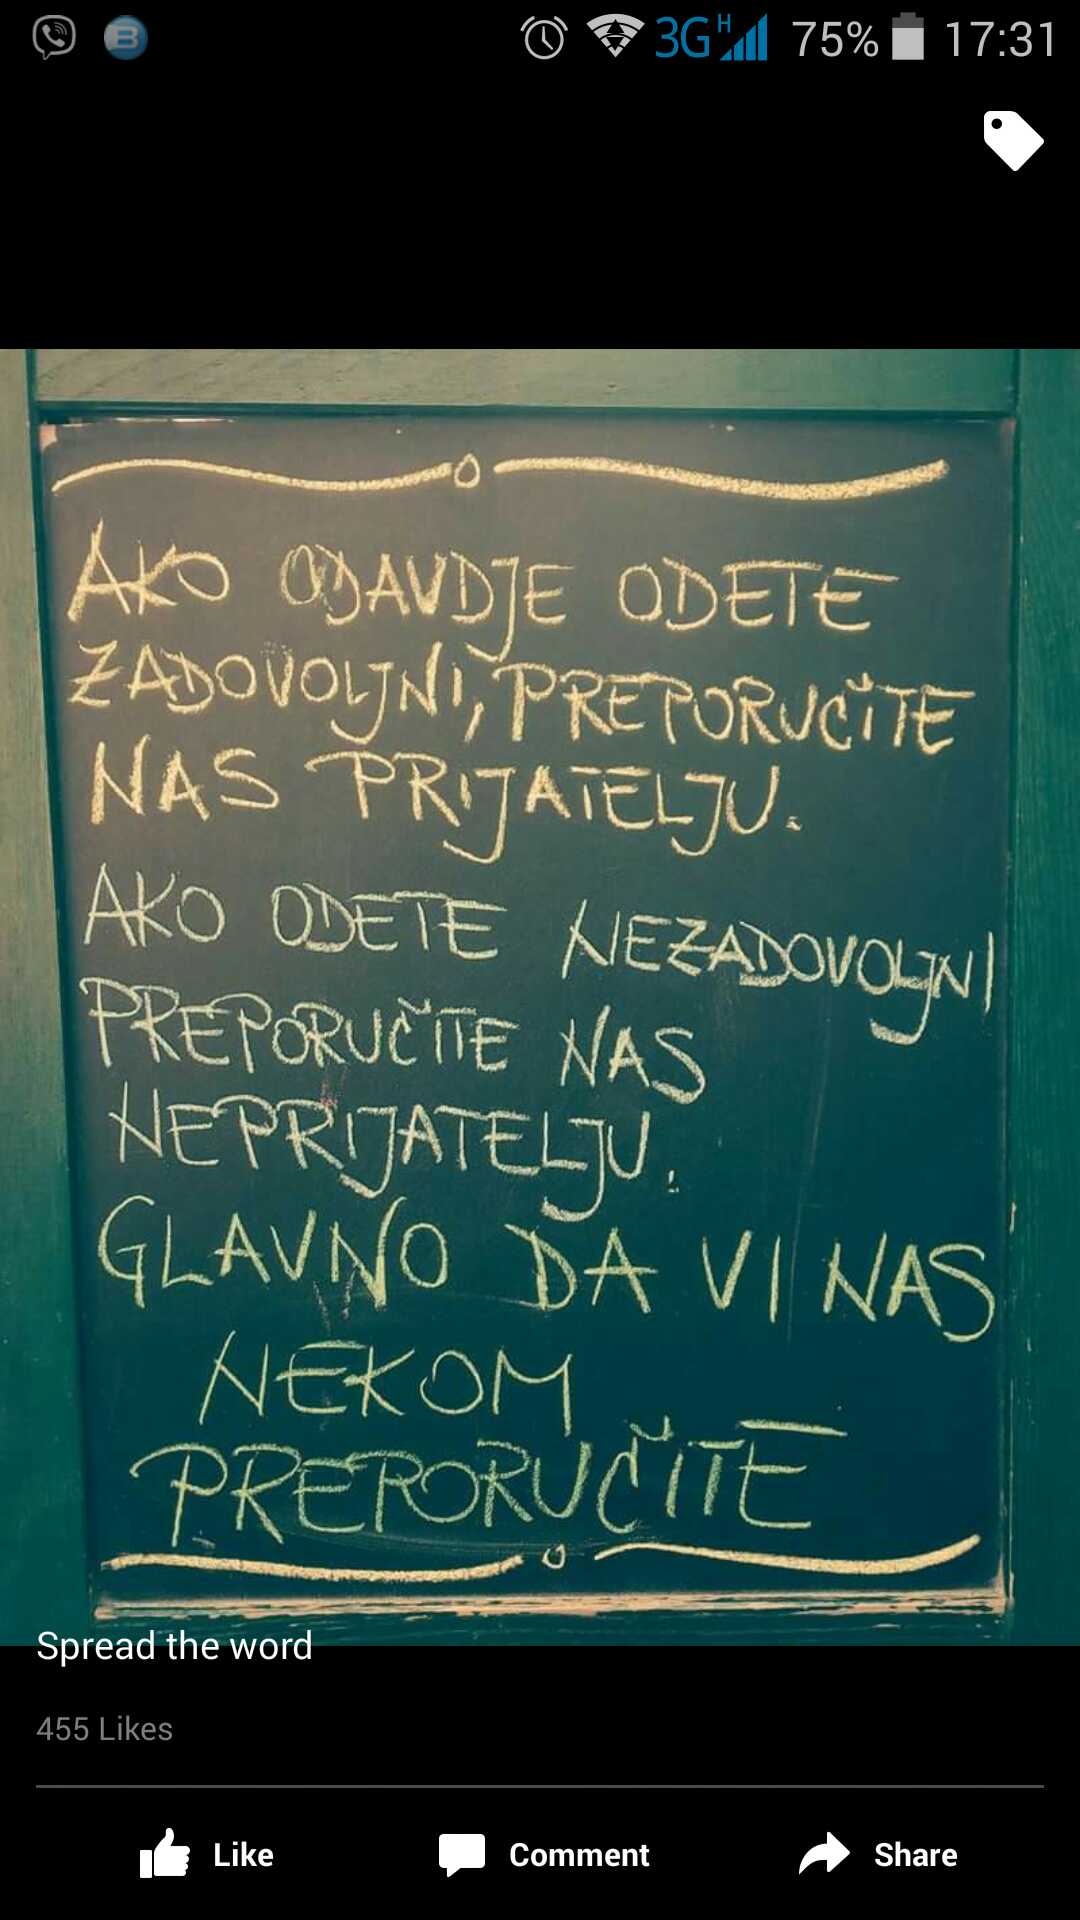 3G H 75% 17:31
AKO ODAVDJE ODETE
ZADOVOLJNI, PREPORUČITE
NAS PRIJATELJU.
AKO ODETE NEZADOVOLJNI
PREPORUČITE NAS
NEPRIJATELJU.
GLAVNO DA VI NAS
NEKOM
PREPORUČITE
Spread the word
455 Likes
Like Comment Share